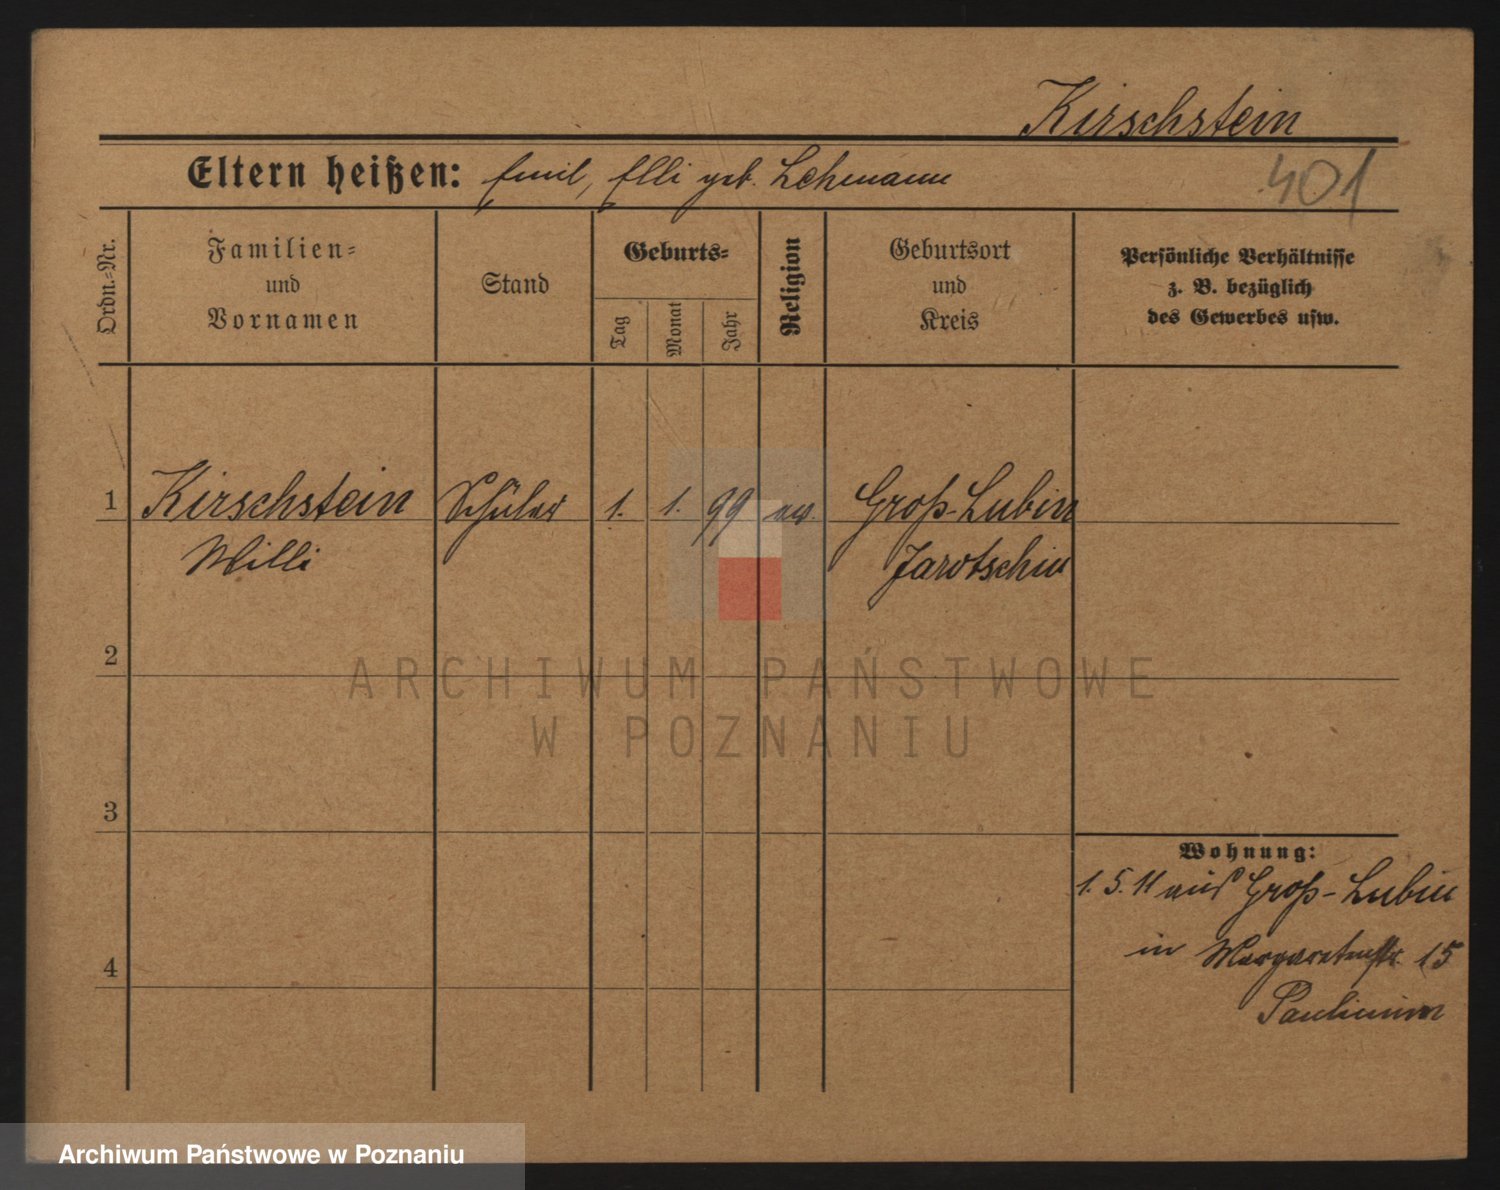 Kirschstein
401
Eltern heißen: Emil, Elli geb. Lehmann
Ordn.-Nr.
Familien-
und
Vornamen
Stand
Geburts-
Tag
Monat
Jahr
Religion
Geburtsort
und
Kreis
Persönliche Verhältnisse
z. B. bezüglich
des Gewerbes usw.
1 Kirschstein Schüler 1. 1. 99 ev. Groß-Lubin
Willi Jarotschin
2
3
4
Wohnung:
1. 5. 11 aus Groß-Lubin
in Margaretenstr. 15
Paulinum
ARCHIWUM PAŃSTWOWE
W POZNANIU
Archiwum Państwowe w Poznaniu